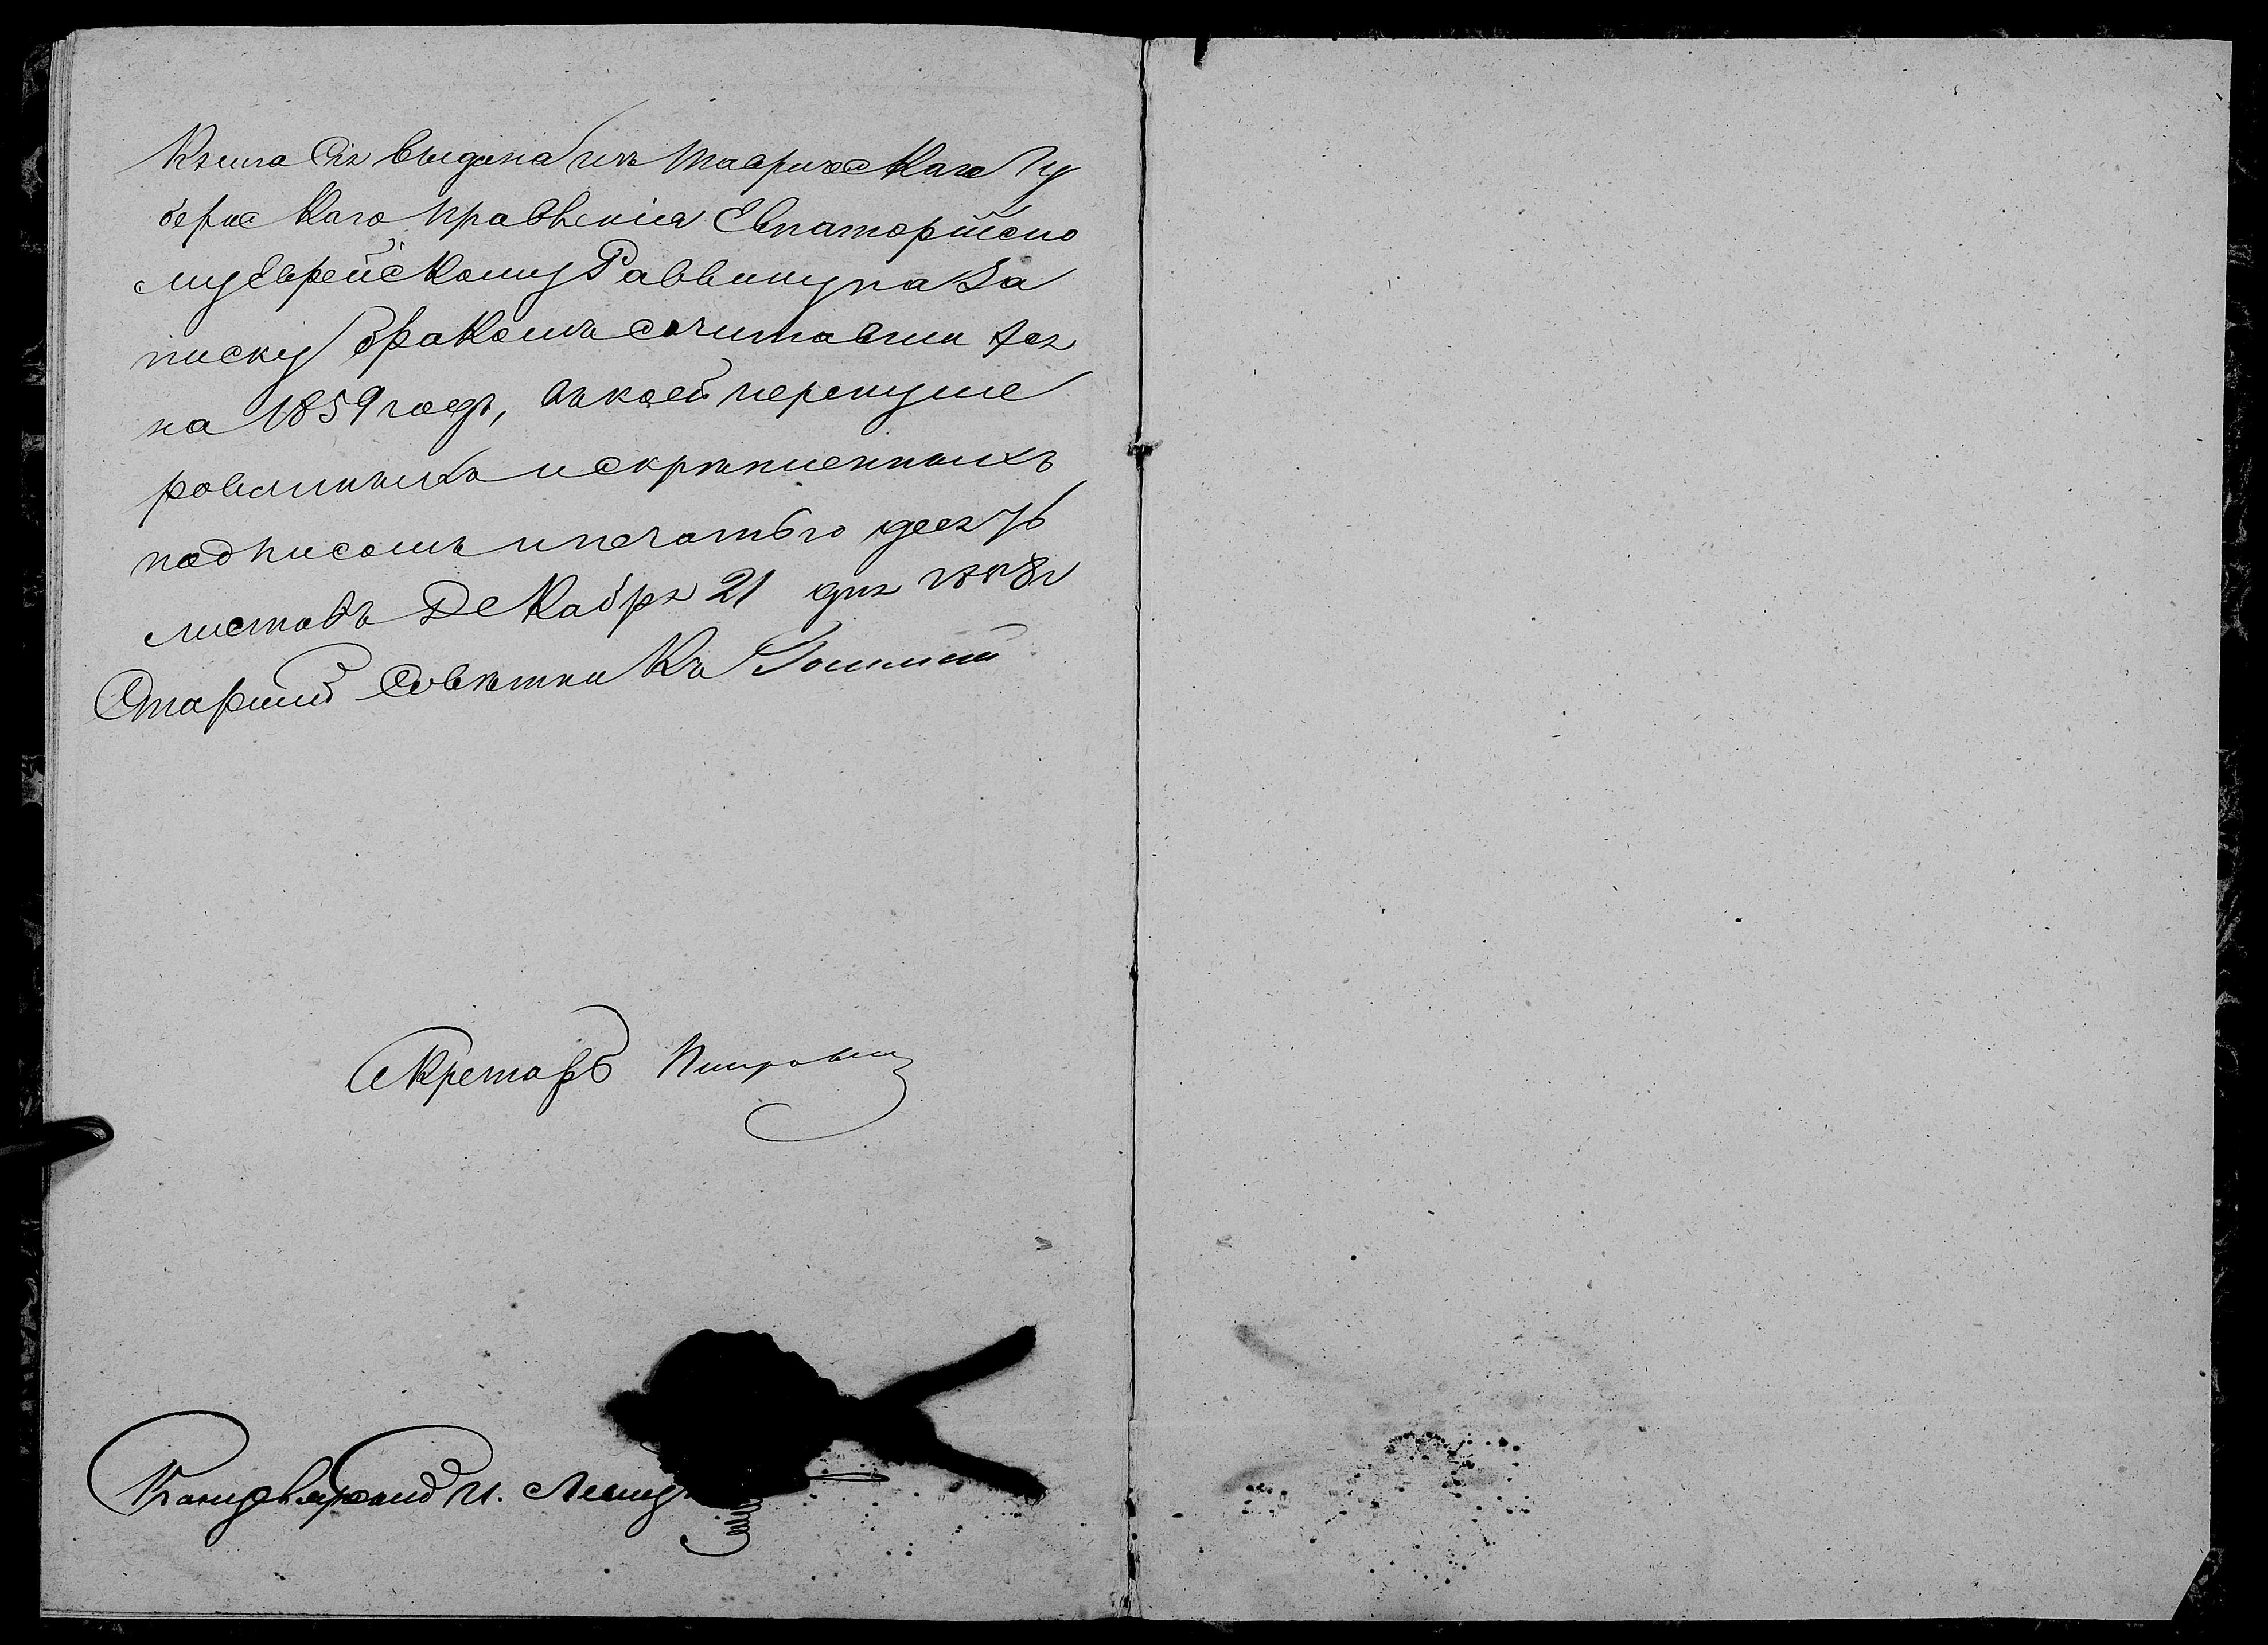 Книга Сія выдана изъ Таврическаго Гу
бернскаго Правленія Евпаторійско
му Еврейскому Раввину на За
писку бракомъ сочитавших ся
на 1859 годъ, въ коей перенуме
рованныхъ и скрѣпленныхъ
подписомъ и печатью десять
листовъ Декабря 21 дня 1858 г
Старшій Совѣтникъ
Секретарь
Канцелярскій И.